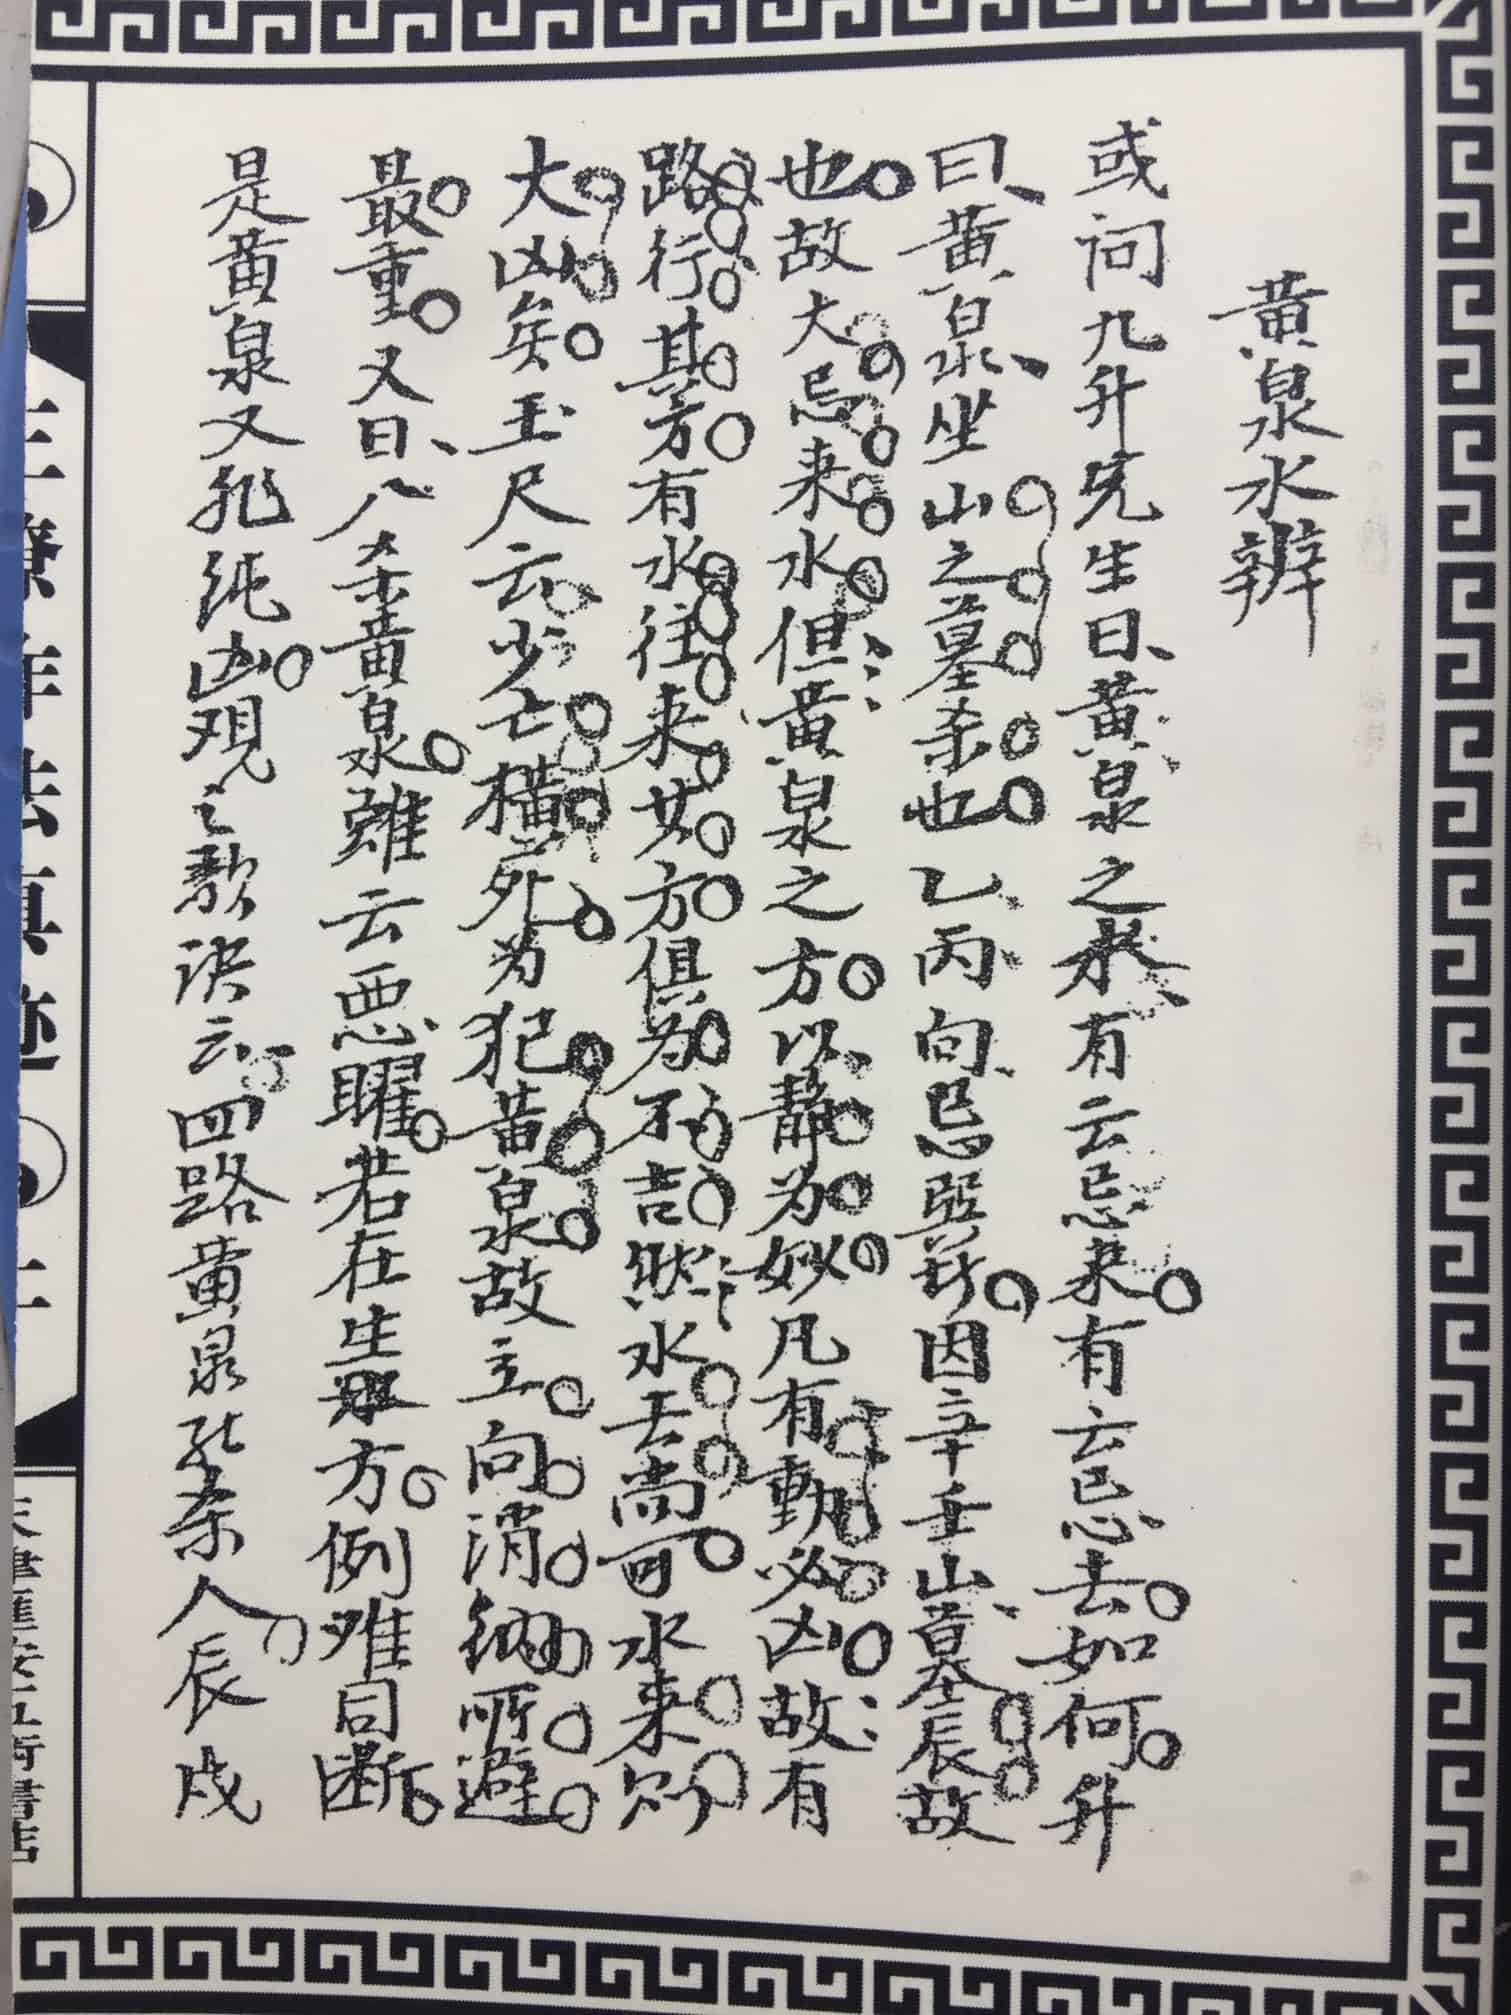 黄泉水辨
或问九升先生曰黄泉之水有云忌来有云忌去如何升
曰黄泉坐山之墓杀也乙丙向忌巽者因辛壬山墓辰故
也故大忌来水但黄泉之方以静为妙凡有動必凶故有
路行其方有水往来其方俱为不吉然水去尚可水来则
大凶矣玉尺云少亡橫死为犯黄泉故立向消纳所避
最重又曰八杀黄泉雖云悪曜若在生方例难同断
是黄泉又非纯凶观之歌诀云四路黄泉能杀人辰戌